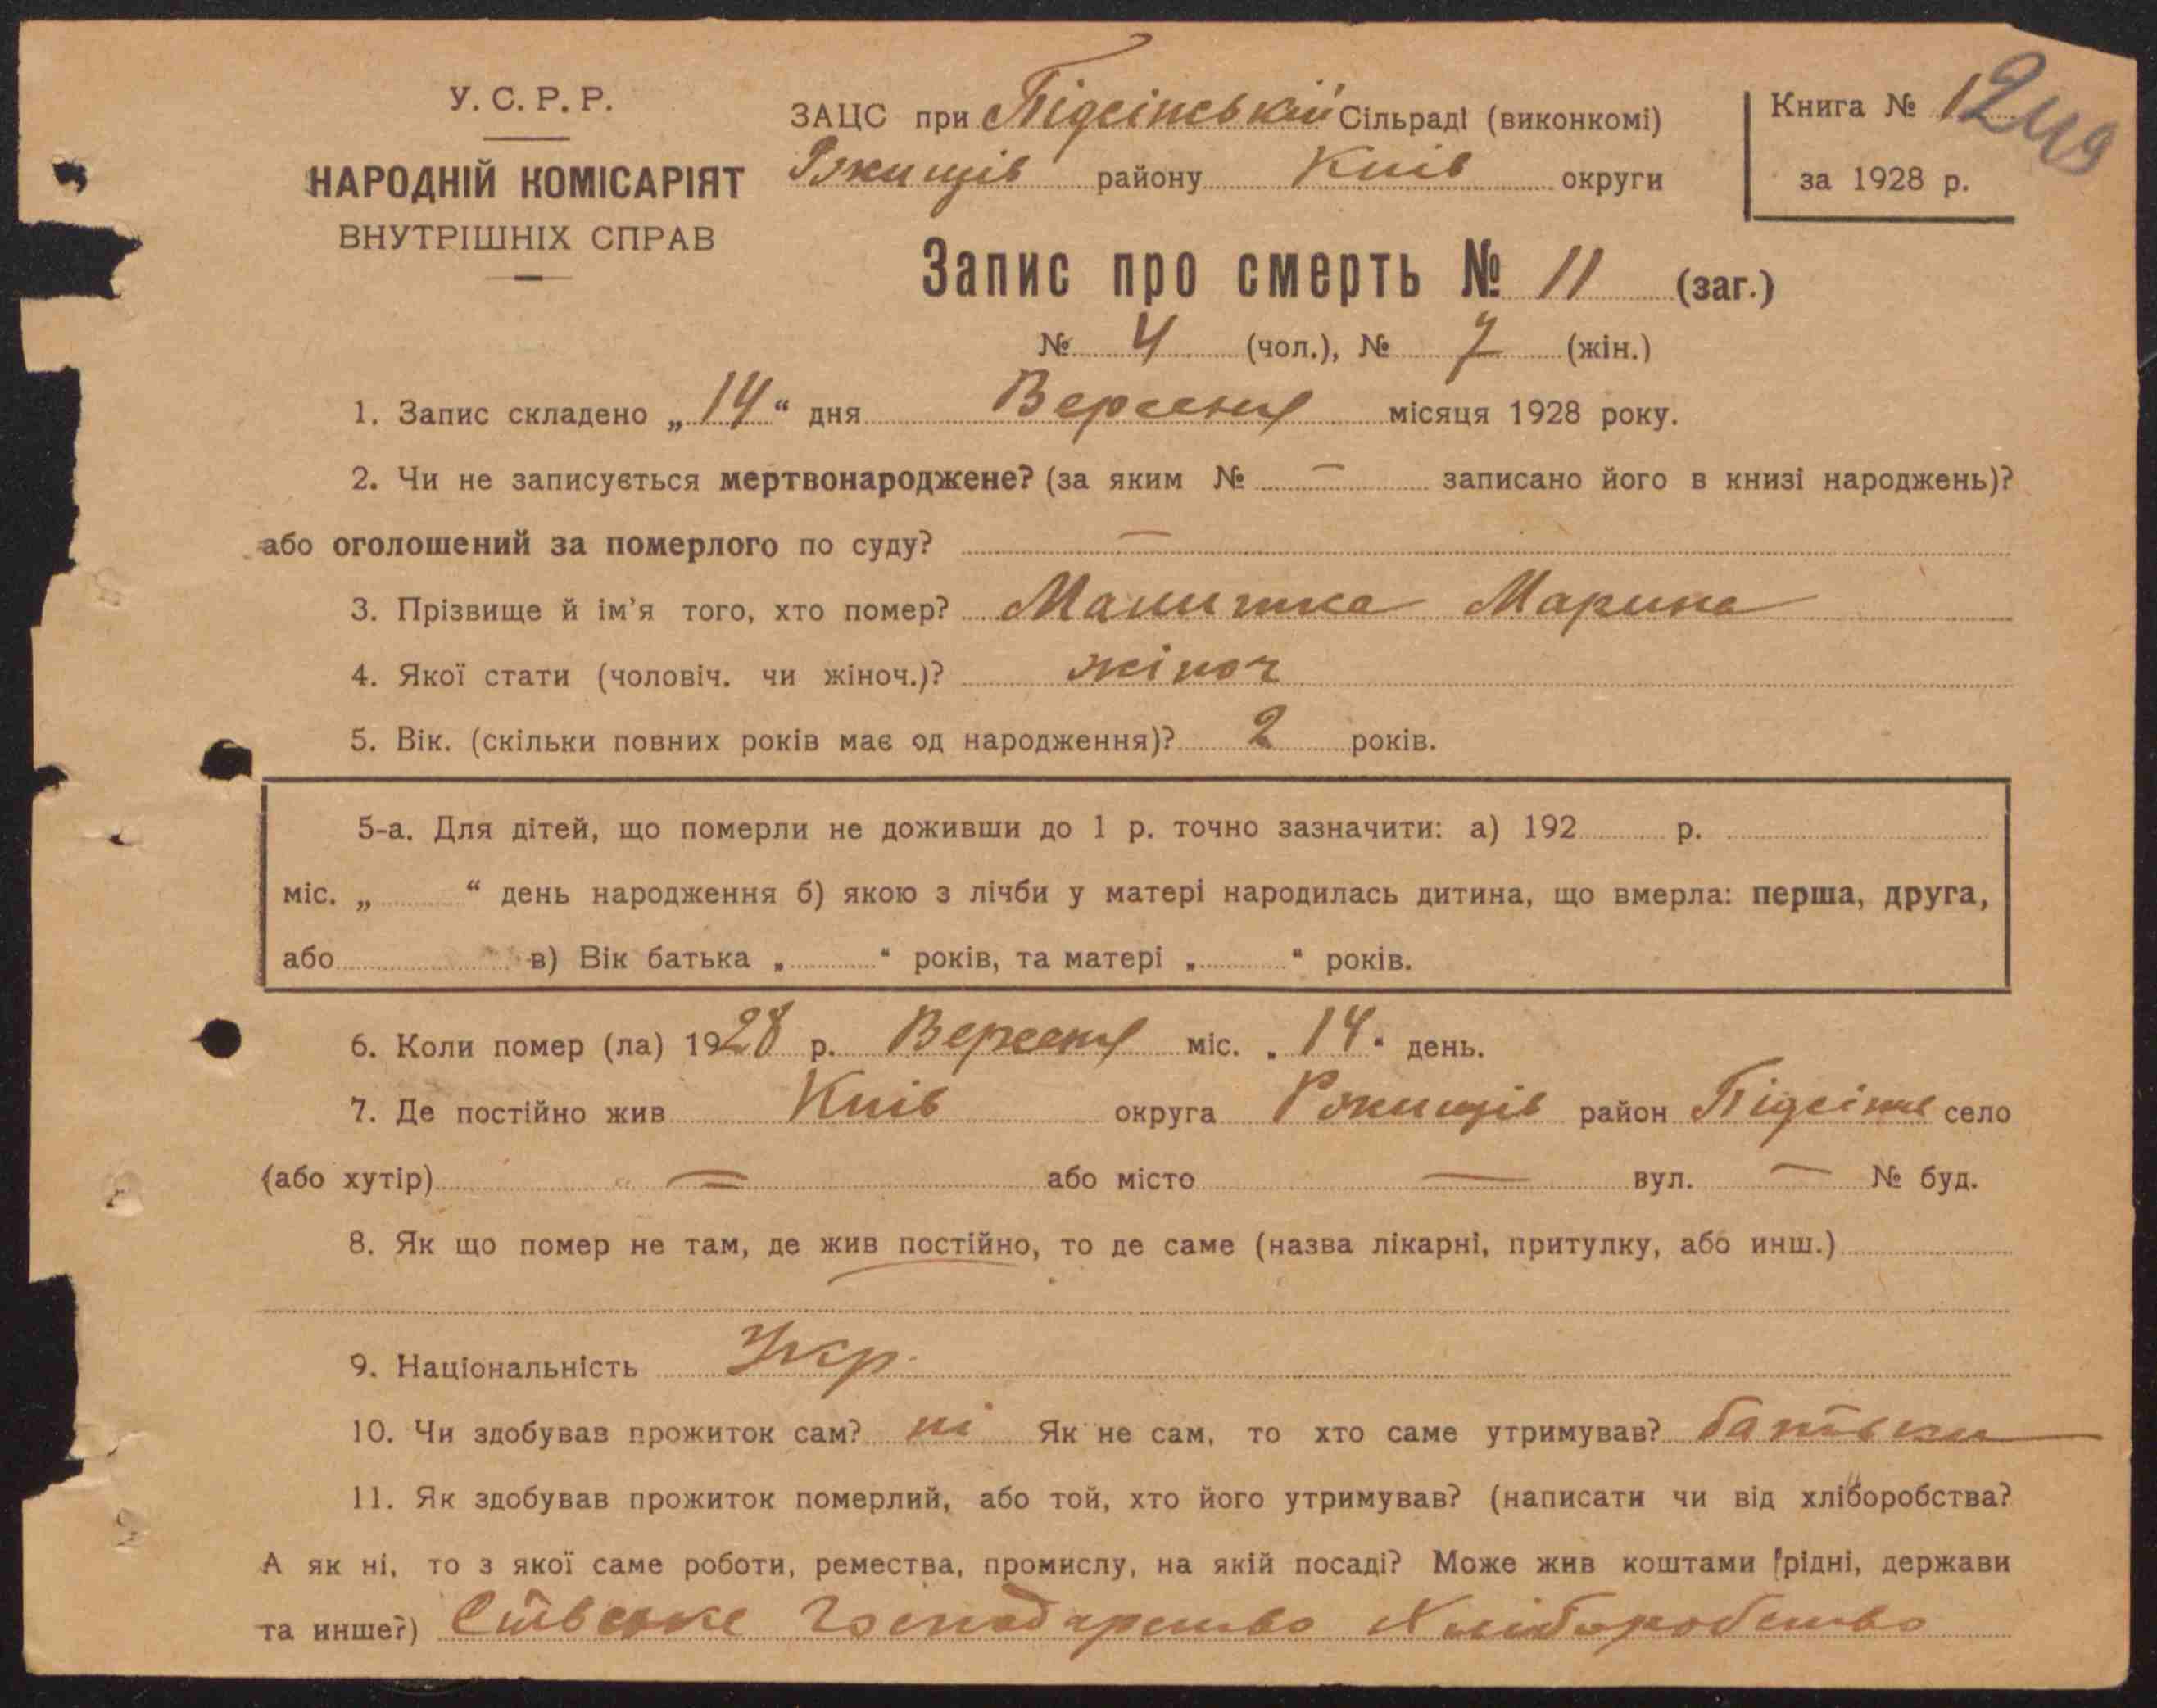 У. С. Р. Р.
НАРОДНІЙ КОМІСАРІЯТ
ВНУТРІШНІХ СПРАВ
ЗАЦС при Підсінській Сільраді (виконкомі)
Ржищів району Київ округи
Книга № 1
249
за 1928 р.
Запис про смерть № 11 (заг.)
№ 4 (чол.), № 7 (жін.)
1. Запис складено „14“ дня Вересня місяця 1928 року.
2. Чи не записується мертвонароджене? (за яким № — записано його в книзі народжень)?
або оголошений за померлого по суду? —
3. Прізвище й ім'я того, хто помер? Марина
4. Якої стати (чоловіч. чи жіноч.)? жіноч
5. Вік. (скільки повних років має од народження)? 2 років.
5-а. Для дітей, що померли не доживши до 1 р. точно зазначити: а) 192 р.
міс. „ “ день народження б) якою з лічби у матері народилась дитина, що вмерла: перша, друга,
або в) Вік батька „ “ років, та матері „ “ років.
6. Коли помер (ла) 1928 р. Вересня міс. „14“ день.
7. Де постійно жив Київ округа Ржищів район село
(або хутір) — або місто — вул. — № буд.
8. Як що помер не там, де жив постійно, то де саме (назва лікарні, притулку, або инш.)
9. Національність Укр.
10. Чи здобував прожиток сам? ні Як не сам, то хто саме утримував? батьки
11. Як здобував прожиток померлий, або той, хто його утримував? (написати чи від хліборобства?
А як ні, то з якої саме роботи, ремества, промислу, на якій посаді? Може жив коштами рідні, держави
та инше?) Сільське Господарство Хліборобство